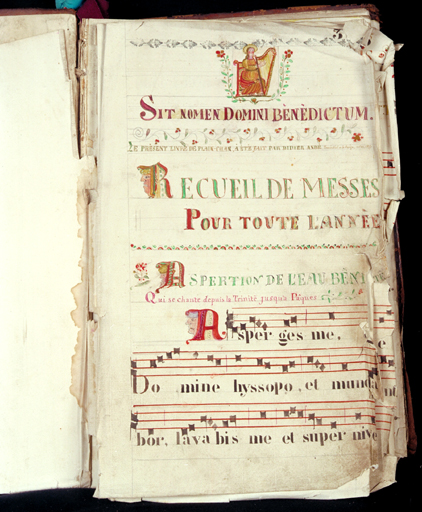 3
SIT NOMEN DOMINI BÈNÈDICTUM.
LE PRÉSENT LIVRE DE PLEIN CHAN, A ÉTÉ FAIT PAR DIDIER
RECUEIL DE MESSES
POUR TOUTE L'ANNÉE
ASPERTION DE L'EAU BÉN
Qui se chante depuis la Trinité, jusqu'à Pâques
Asper ges me,
Do mine hyssopo, et mund
bor. lava bis me et super nive